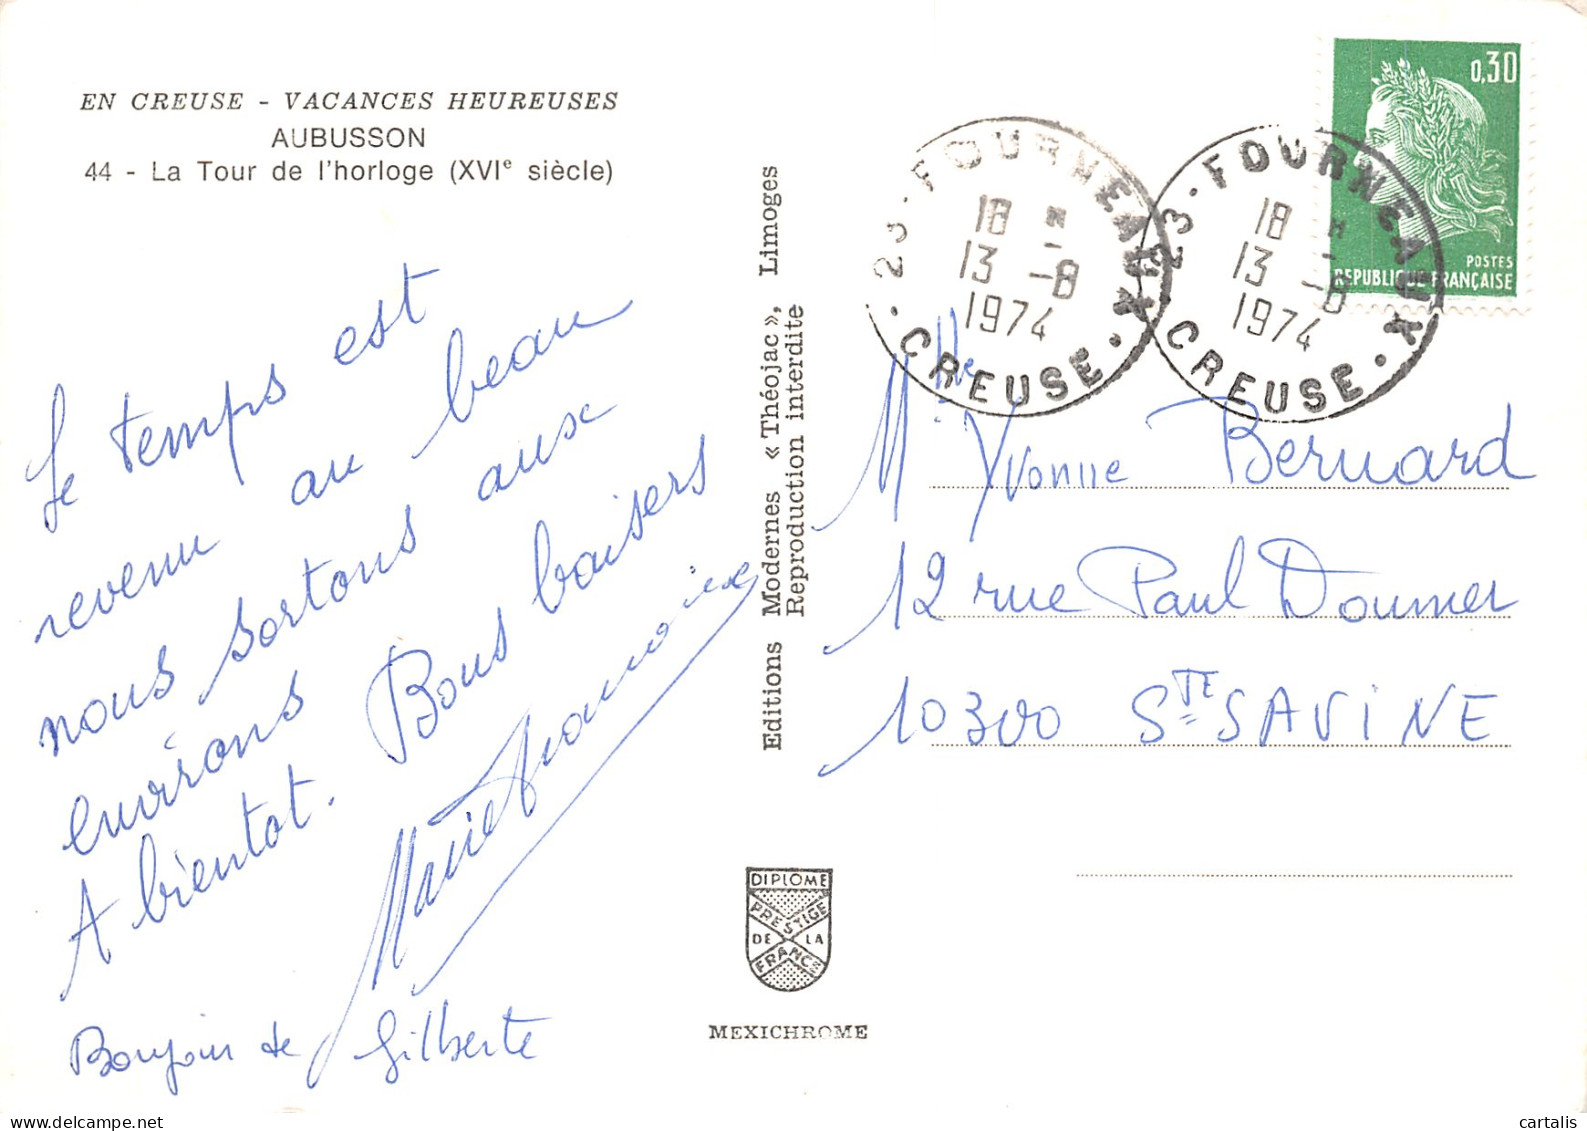 EN CREUSE - VACANCES HEUREUSES
AUBUSSON
44 - La Tour de l'horloge (XVIe siècle)
Le temps est
revenu au beau
nous sortons aux
environs
A bientot. Bons baisers
Marie Françoise
Bonjour de Gilberte
Editions Modernes « Théojac », Limoges
Reproduction interdite
DIPLOME
PRESTIGE
DE LA
FRANCE
MEXICHROME
23 · FOURNEAUX · CREUSE ·
18 H
13 -8
1974
23 · FOURNEAUX · CREUSE
18 H
13 -8
1974
0,30
POSTES
REPUBLIQUE FRANÇAISE
Mlle Yvonne Bernard
12 rue Paul Doumer
10300 STE SAVINE
cartalis